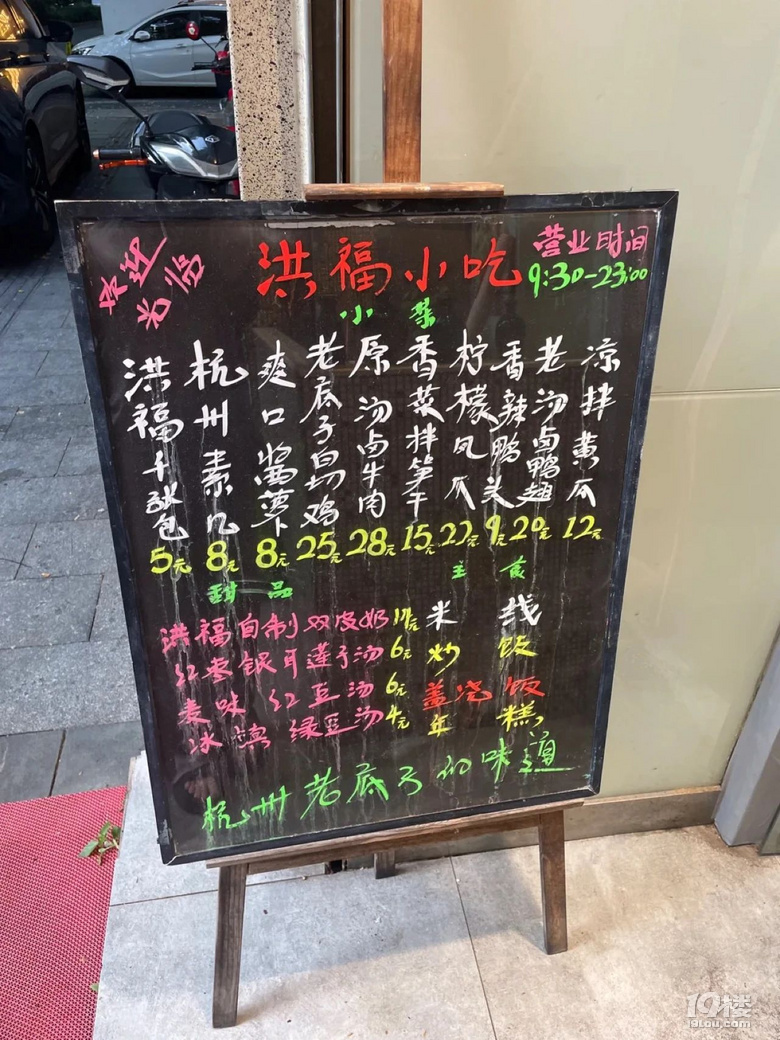 欢迎
光临
洪福小吃
营业时间
9:30-23:00
小菜
洪福千张包 5元
杭州素几 8元
爽口酱萝卜 8元
老底子白切鸡 25元
原汤卤牛肉 28元
香菜拌笋干 15元
柠檬凤爪 22元
香辣鸭头 9元
老汤卤鸭翅 20元
凉拌黄瓜 12元
甜品
洪福自制双皮奶 元
红枣银耳莲子汤 6元
美味红豆汤 6元
冰镇绿豆汤 4元
主食
米线
炒饭
盖浇饭
年糕
杭州老底子的味道
19楼
19lou.com